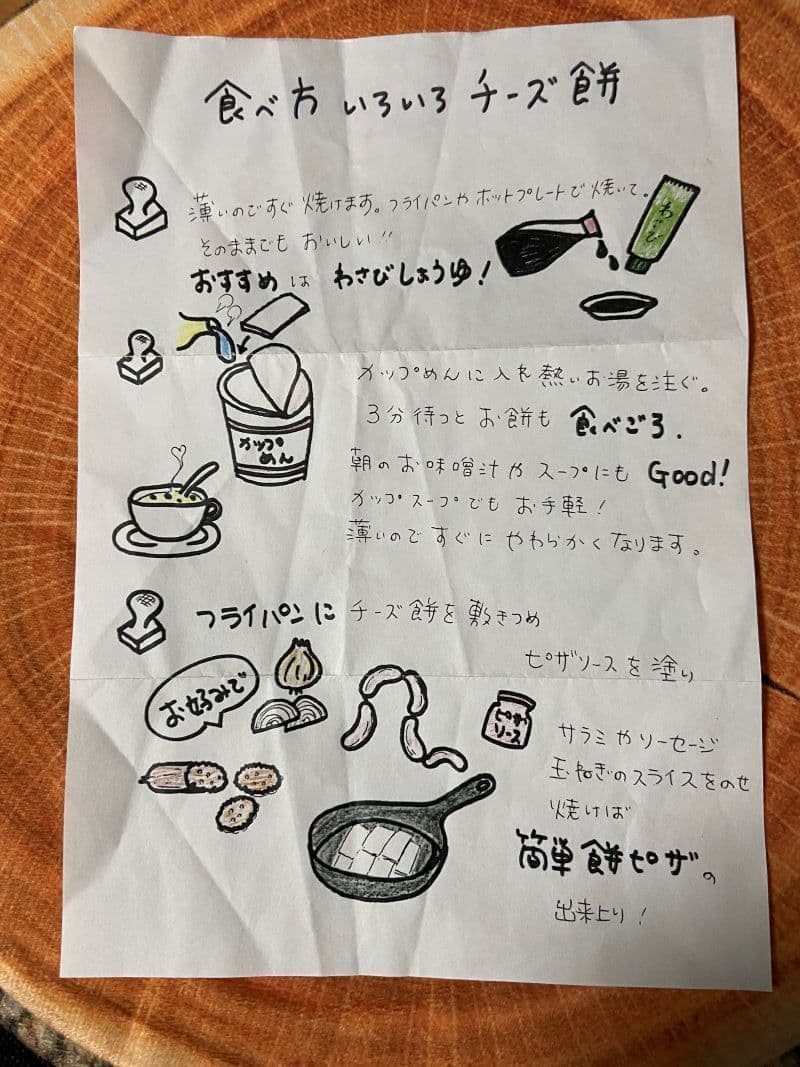 食べ方いろいろチーズ餅
薄いのですぐ焼けます。フライパンやホットプレートで焼いて。
そのままでもおいしい!!
おすすめは わさびしょうゆ!
わさび
カップめんに入れ熱いお湯を注ぐ。
3分待つとお餅も食べごろ.
カップ
めん
朝のお味噌汁やスープにもGood!
カップスープでもお手軽!
薄いのですぐにやわらかくなります。
フライパンにチーズ餅を敷きつめ
ピザソースを塗り
お好みで
ピザ
ソース
サラミやソーセージ
玉ねぎのスライスをのせ
焼けば
簡単餅ピザの
出来上り!